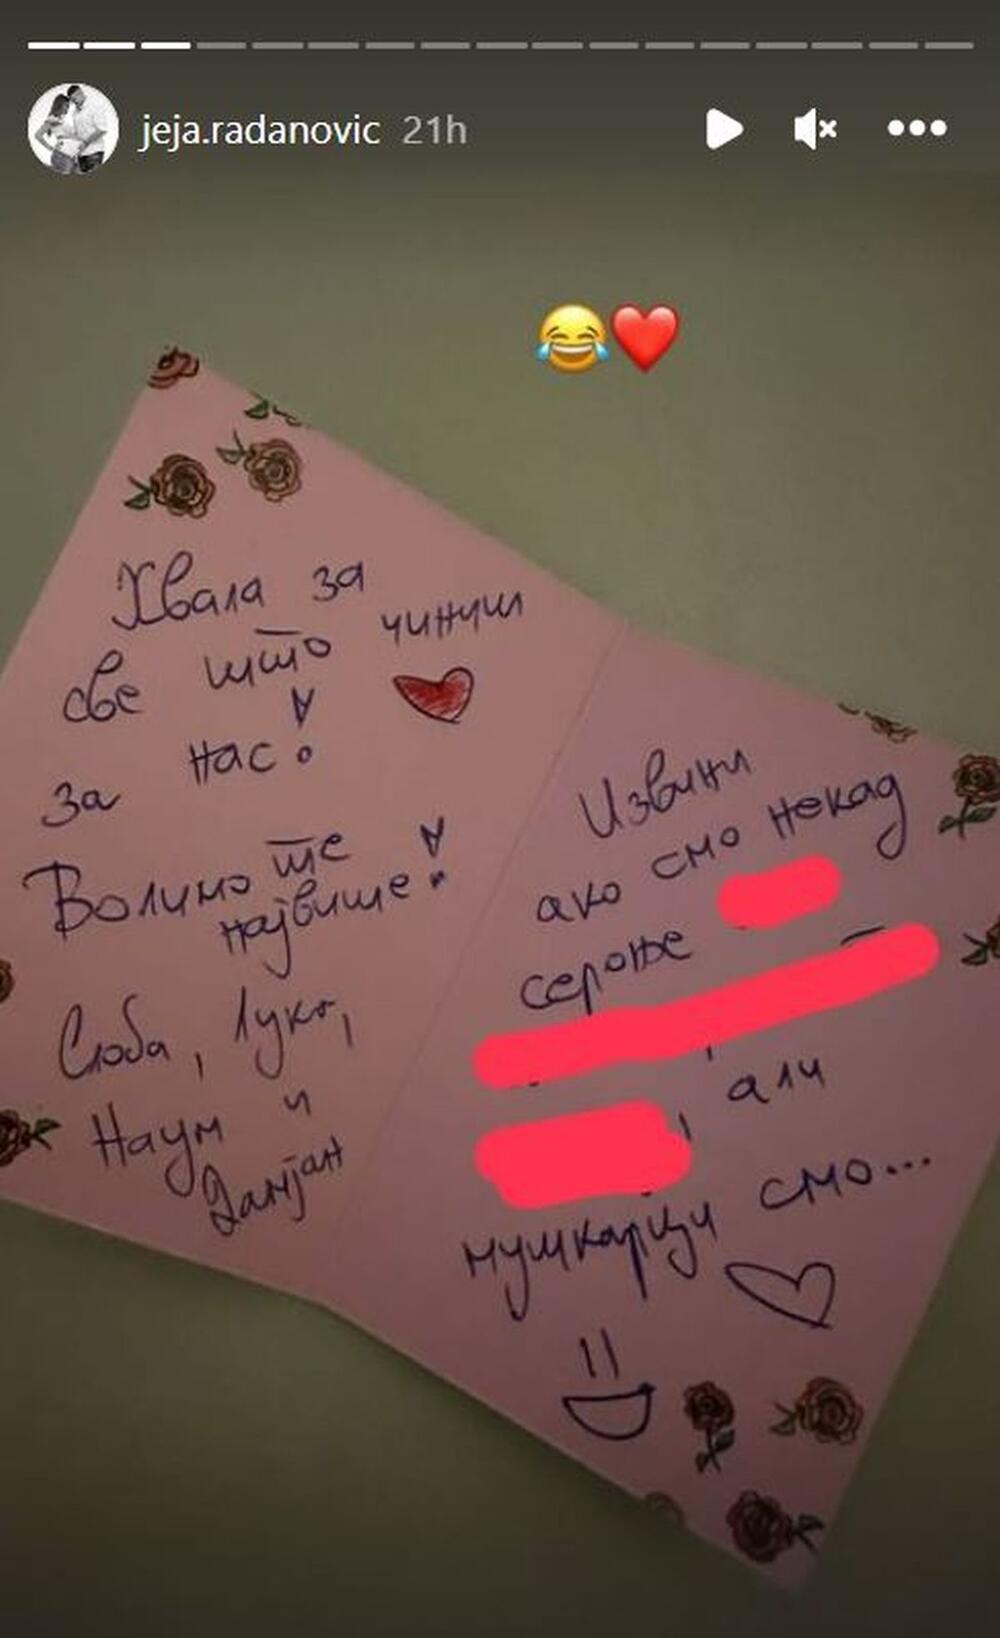 jeja.radanovic 21h
😂❤️
Хвала за
све што чиниш
за нас!
Волимо те
највише!
Слоба, Лука,
Наум и
Дамјан
Извини
ако смо некад
сероње
, али
,
мушкарци смо...